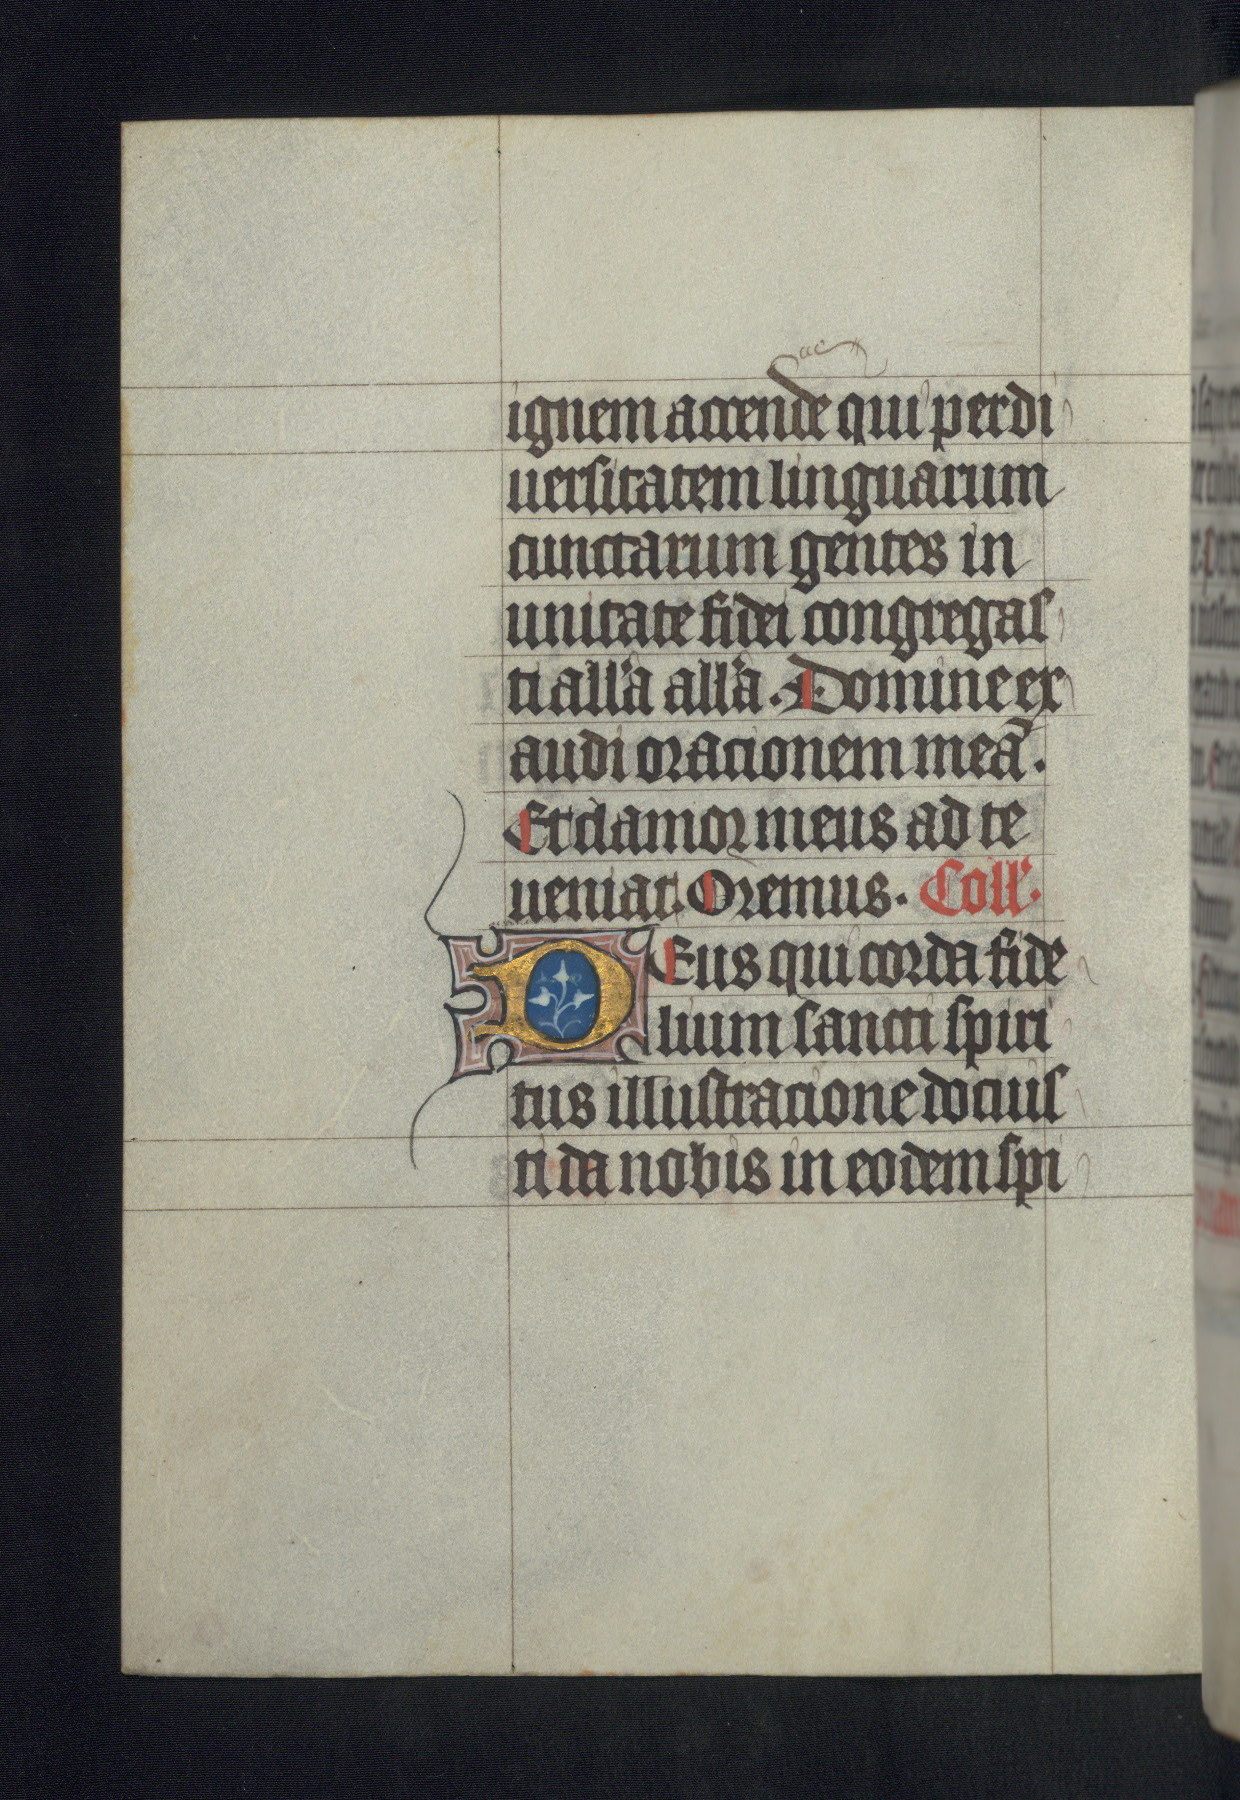 ignem accende qui per di
uersitatem linguarum
cunctarum gentes in
unitate fidei congregas
ti all'a all'a. Domine ex
audi oracionem meā.
Et clamor meus ad te
ueniat. Oremus. Coll'.
DEus qui corda fide
lium sancti spiri
tus illustracione docuis
ti da nobis in eodem spi